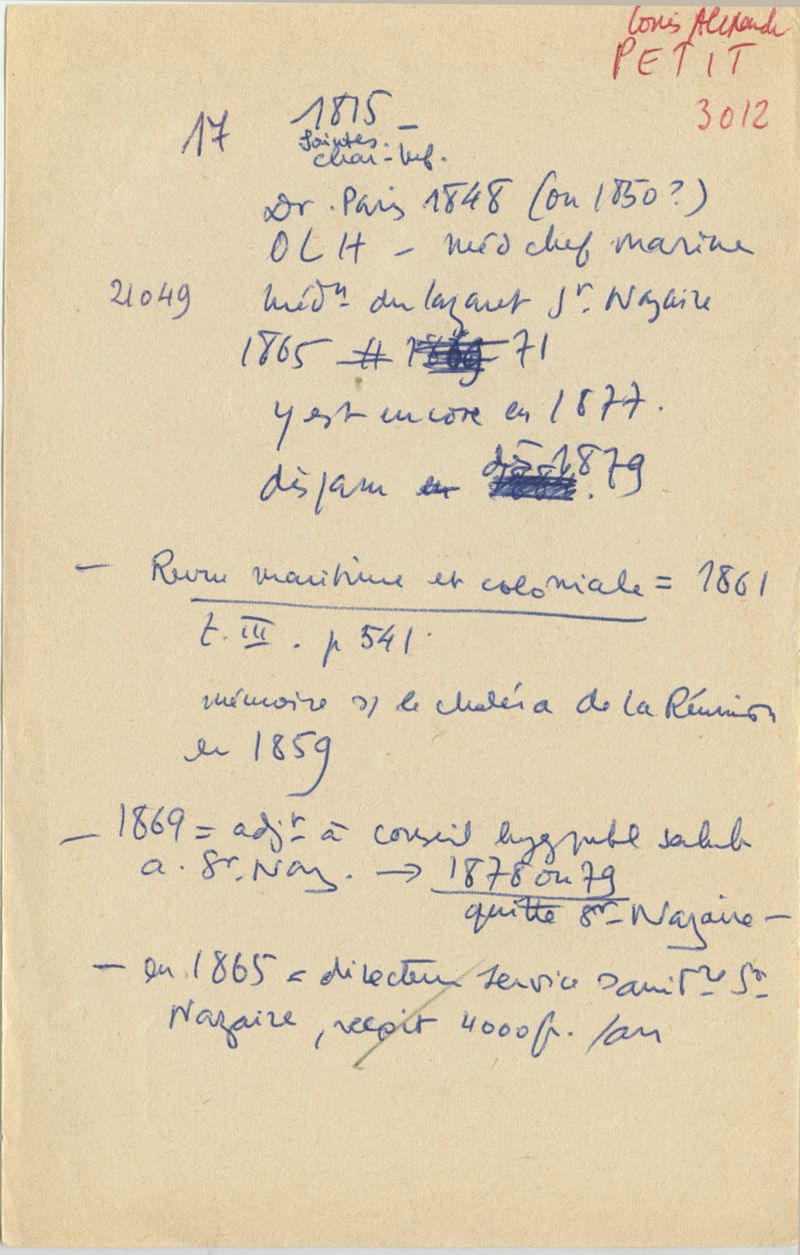 Louis Alexandre
PETIT
3012
17 1815 -
Saintes.
char-Inf.
Dr. Paris 1848 (ou 1850?)
OLH - méd chef marine
21049 médn du lazaret St. Nazaire
1865 # 71
y est encore en 1877.
dès 1879
disparu
- Revue maritime et coloniale = 1861
t. III. p 541
mémoire s/ le choléra de la Réunion
en 1859
- 1869 = adjt à conseil hyg publ salub
a. St. Naz. → 1878 ou 79
quitte St-Nazaire -
- en 1865 = directeur service sanitre St
Nazaire, reçoit 4000 fr. /an